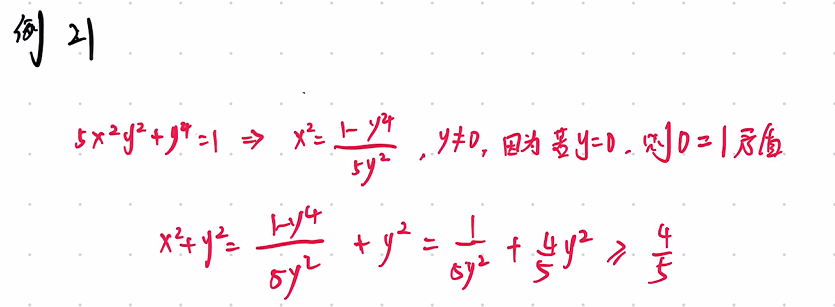 例 21
5x²y²+y⁴=1 ⇒ x²=\frac{1-y⁴}{5y²}, y≠0, 因为若y=0. 则0=1矛盾
x²+y²=\frac{1-y⁴}{5y²}+y²=\frac{1}{5y²}+\frac{4}{5}y²≥\frac{4}{5}